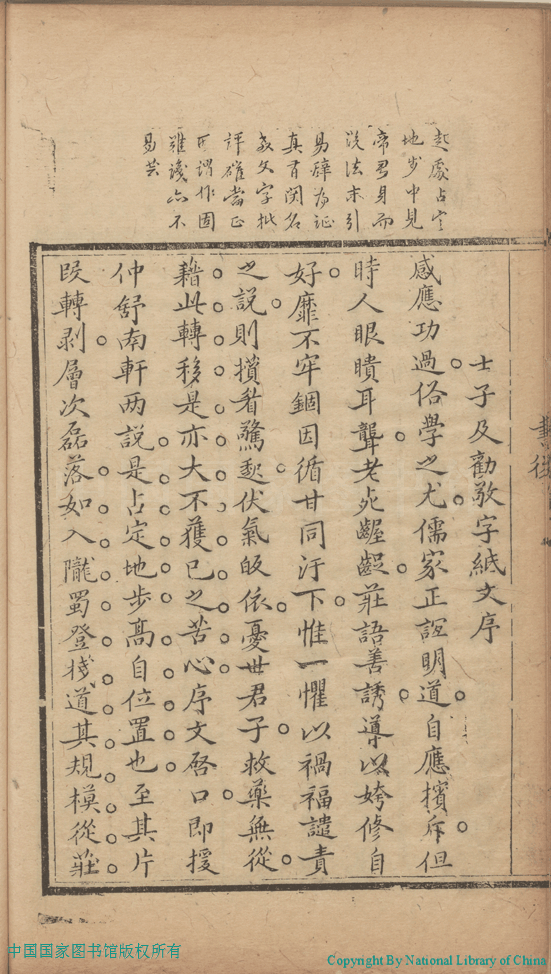 起處占定
地步中見
帝君身而
說法末引
易辭為証
真有関名
教文字批
評確當正
所謂作固
難識亦不
易芸
書後
士子及勸敬字紙文序
感應功過俗學之尤儒家正誼明道自應擯斥但
時人眼瞆耳聾老死齷齪莊語善誘導以姱修自
好靡不牢錮因循甘同汙下惟一懼以禍福譴責
之說則摃眉驚遬伏氣皈依憂世君子救藥無從
藉此轉移是亦大不獲已之苦心序文啓口即援
仲舒南軒两說是占定地步髙自位置也至其片
段轉剥層次磊落如入隴蜀登棧道其規模從莊
中国国家图书馆版权所有
Copyright By National Library of China